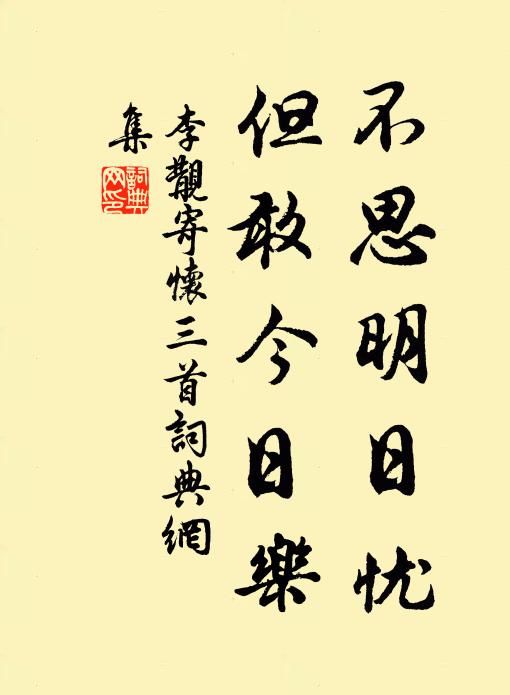 不思明日忧
但敢今日樂
李觀寄懷三首詞典網
集
詞典
网印